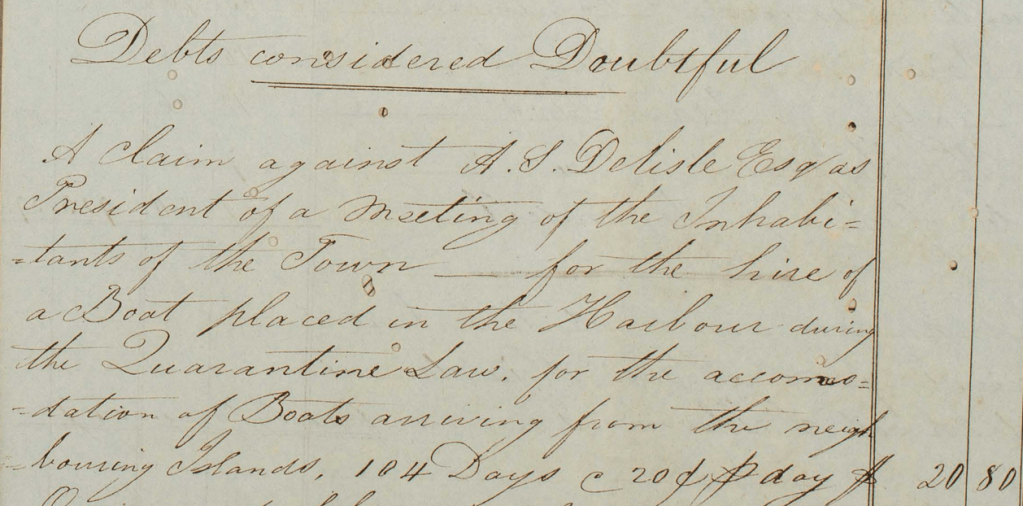 Debts considered Doubtful
A Claim against A. S. Delisle Esqr as
President of a Meeting of the Inhabi=
=tants of the Town — for the hire of
a Boat placed in the Harbour during
the Quarantine Law. for the accomo=
=dation of Boats arriving from the neigh
=bouring Islands, 104 Days c 20¢ ⅌ day $ 20 80